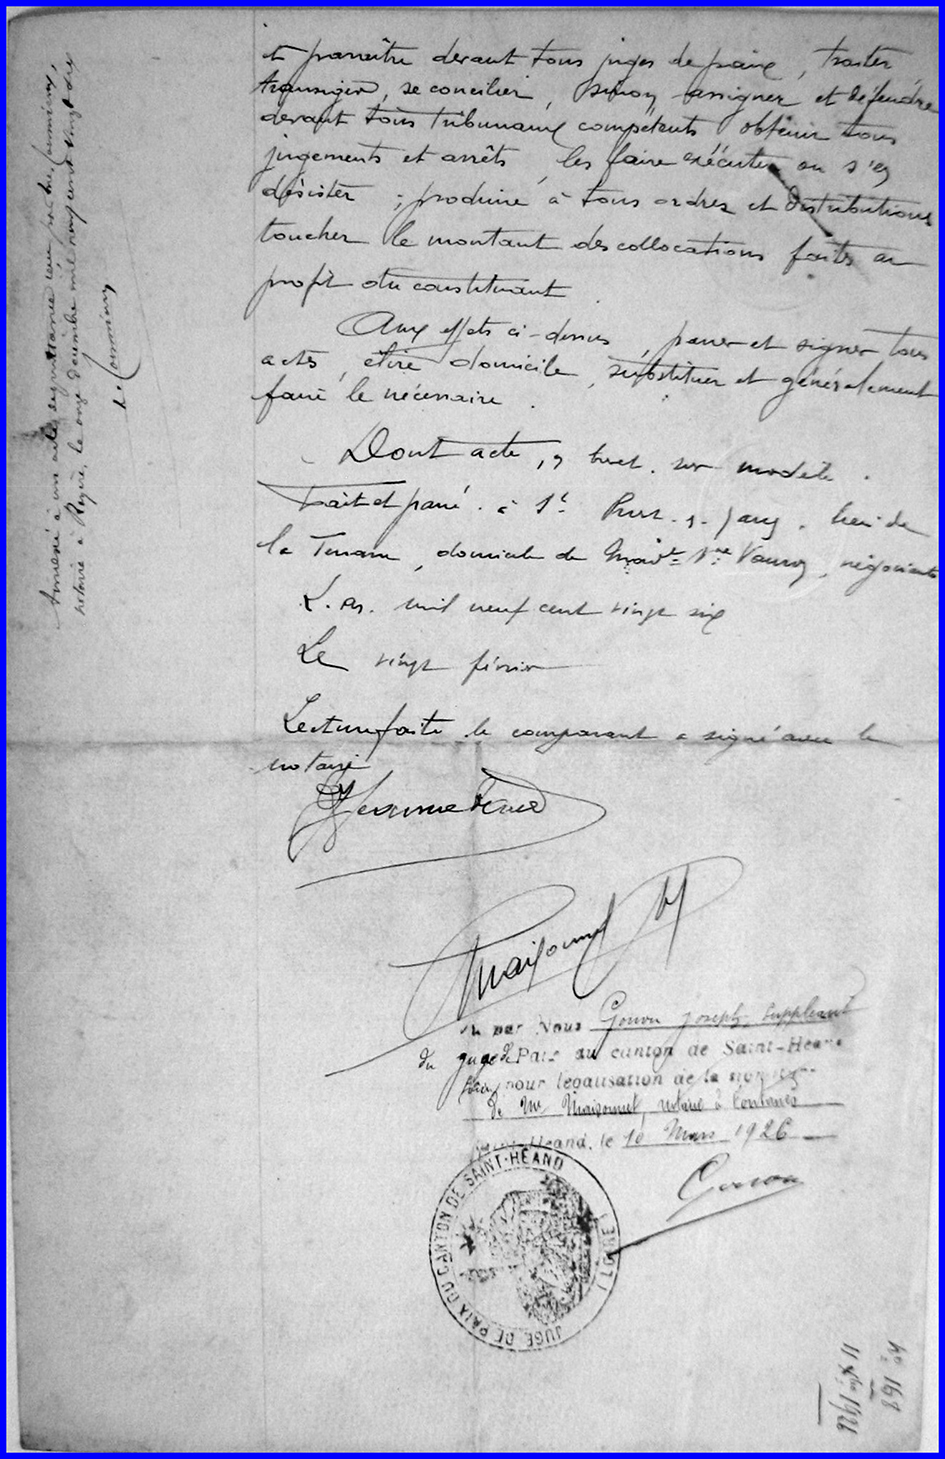 et paraître devant tous juges de paix, traiter
transiger, se concilier, sinon assigner et défendre
devant tous tribunaux compétents obtenir tous
jugements et arrêts, les faire exécuter ou s'en
désister ; produire à tous ordres et distributions
toucher le montant des collocations faites au
profit du constituant
Aux effets ci-dessus, passer et signer tous
actes, élire domicile, substituer et généralement
faire le nécessaire.
Dont acte, en brevet sur modèle.
Fait et passé à St lieu de
la domicile de négociante
L'an mil neuf cent vingt six
Le vingt février
Lecture faite le comparant a signé avec le
notaire
Vu par Nous Gonon Joseph, suppléant
du juge de Paix du canton de Saint-Héand
pour légalisation de la signature
de Me Maisonnet, notaire à
Saint-Héand, le 10 Mars 1926
Gonon
JUGE DE PAIX DU CANTON DE SAINT-HÉAND
(LOIRE)
Annexé à un acte de quittance reçu par Me
notaire à le onze décembre mil neuf cent vingt six
No 168
11 1926